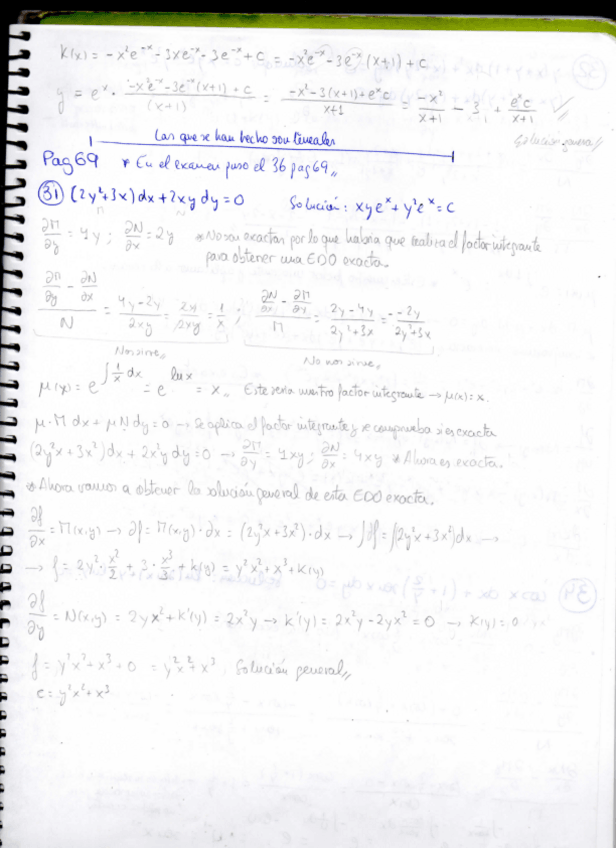 K(x) = -x²e⁻ˣ - 3xe⁻ˣ - 3e⁻ˣ + c = -x²e⁻ˣ - 3e⁻ˣ(x+1) + c
y = eˣ · (-x²e⁻ˣ - 3e⁻ˣ(x+1) + c)/(x+1) = (-x² - 3(x+1) + eˣc)/(x+1) = -x²/(x+1) - 3/1 + eˣc/(x+1) //
Solución general //
Las que se han hecho son lineales
Pag 69 * En el examen puso el 36 pag 69 //
(31) (2y²+3x)dx + 2xy dy = 0 Solución: xyeˣ + y²eˣ = C
M N
∂M/∂y = 4y ; ∂N/∂x = 2y * No son exactas por lo que habría que realizar el factor integrante
para obtener una EDO exacta.
(∂M/∂y - ∂N/∂x)/N = (4y-2y)/2xy = 2y/2xy = 1/x ; (∂N/∂x - ∂M/∂y)/M = (2y-4y)/(2y²+3x) = -2y/(2y²+3x)
Nos sirve // No nos sirve //
μ(x) = e^∫(1/x)dx = e^lnx = x // Este sería nuestro factor integrante → μ(x) = x.
μ·M dx + μN dy = 0 → Se aplica el factor integrante y se comprueba si es exacta
(2y²x + 3x²)dx + 2x²y dy = 0 → ∂M/∂y = 4xy ; ∂N/∂x = 4xy * Ahora es exacta.
* Ahora vamos a obtener la solución general de esta EDO exacta.
∂f/∂x = M(x,y) → ∂f = M(x,y)·dx = (2y²x + 3x²)·dx → ∫∂f = ∫(2y²x + 3x²)dx →
→ f = 2y²·x²/2 + 3·x³/3 + K(y) = y²x² + x³ + K(y)
∂f/∂y = N(x,y) = 2yx² + K'(y) = 2x²y → K'(y) = 2x²y - 2yx² = 0 → K(y) = 0
f = y²x² + x³ + 0 = y²x² + x³ Solución general //
C = y²x² + x³